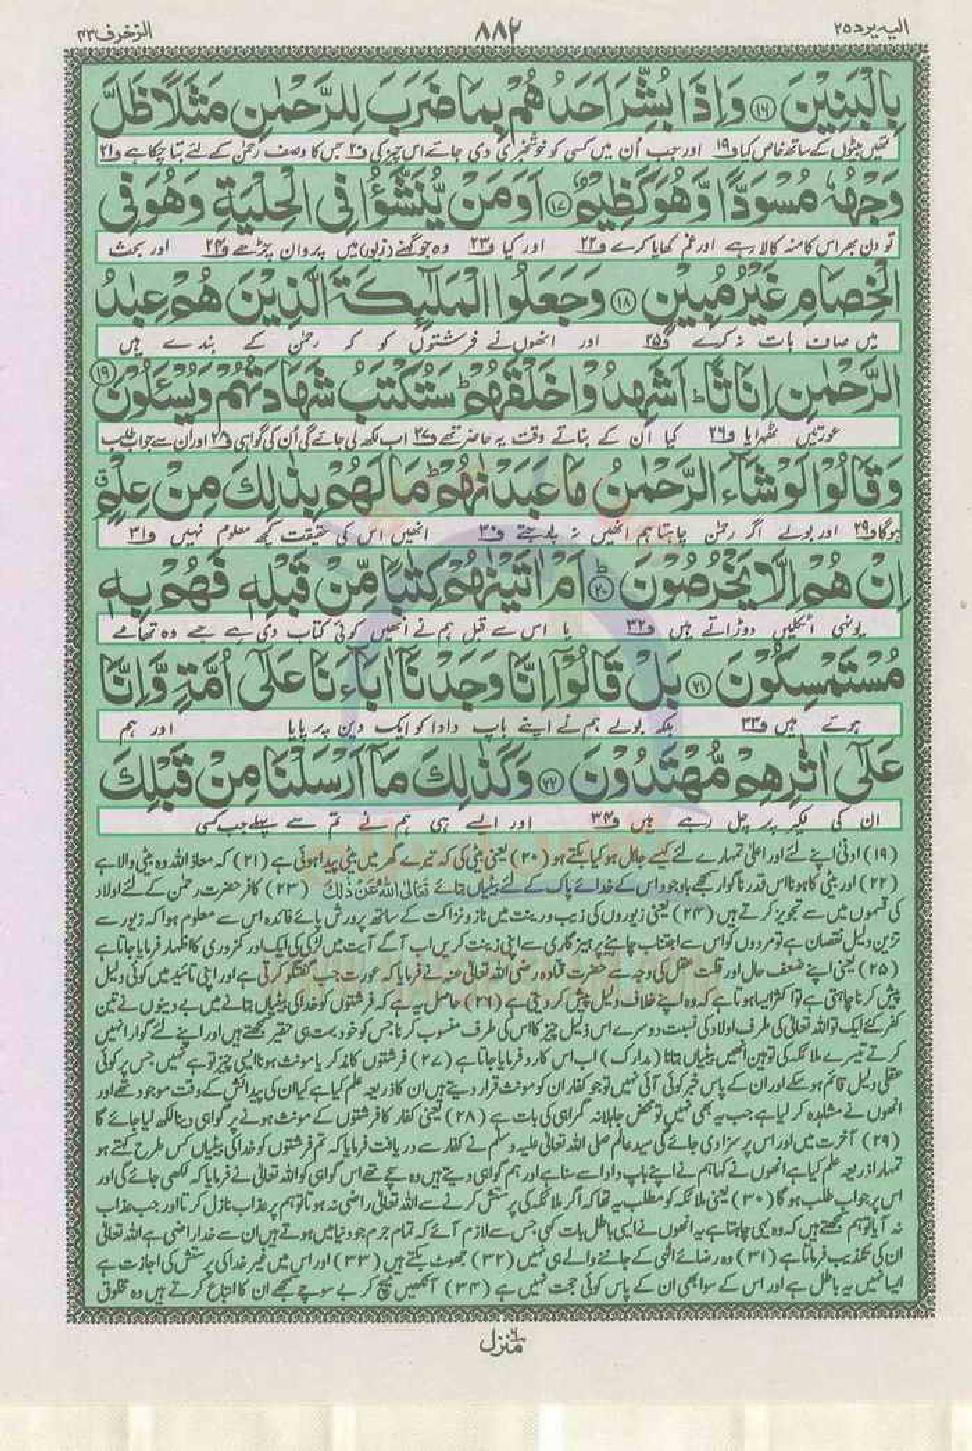 الیہ یرد ۲۵ ۸۸۲ الزخرف ۴۳
بِالْبَنِيْنَ ﴿۱۶﴾ وَاِذَا بُشِّرَ اَحَدُهُمْ بِمَا ضَرَبَ لِلرَّحْمٰنِ مَثَلًا ظَلَّ
تمہیں بیٹوں کے ساتھ خاص کیا ف۱۹ اور جب اُن میں کسی کو خوشخبری دی جائے اس چیز کی ف۲۰ جس کا وصف رحمٰن کے لئے بتا چکا ہے ف۲۱
وَجْهُهٗ مُسْوَدًّا وَّهُوَ كَظِيْمٌ ﴿۱۷﴾ اَوَمَنْ يُّنَشَّؤُا فِى الْحِلْيَةِ وَهُوَ فِى
تو دن بھر اس کا منہ کالا رہے اور غم کھایا کرے ف۲۲ اور کیا ف۲۳ وہ جو گہنے (زیور) میں پروان چڑھے ف۲۴ اور بحث
الْخِصَامِ غَيْرُ مُبِيْنٍ ﴿۱۸﴾ وَجَعَلُوا الْمَلٰٓئِكَةَ الَّذِيْنَ هُمْ عِبٰدُ
میں صاف بات نہ کرے ف۲۵ اور انھوں نے فرشتوں کو کہ رحمٰن کے بندے ہیں
الرَّحْمٰنِ اِنَاثًا ؕ اَشَهِدُوْا خَلْقَهُمْ ؕ سَتُكْتَبُ شَهَادَتُهُمْ وَيُسْئَلُوْنَ ﴿۱۹﴾
عورتیں ٹھہرایا ف۲۶ کیا ان کے بناتے وقت یہ حاضر تھے ف۲۷ اب لکھ لی جائے گی اُن کی گواہی ف۲۸ اور ان سے جواب طلب
وَقَالُوْا لَوْ شَآءَ الرَّحْمٰنُ مَا عَبَدْنٰهُمْ ؕ مَا لَهُمْ بِذٰلِكَ مِنْ عِلْمٍ ۗ
ہوگا ف۲۹ اور بولے اگر رحمٰن چاہتا ہم انھیں نہ پوجتے ف۳۰ انھیں اس کی حقیقت کچھ معلوم نہیں ف۳۱
اِنْ هُمْ اِلَّا يَخْرُصُوْنَ ﴿۲۰﴾ اَمْ اٰتَيْنٰهُمْ كِتٰبًا مِّنْ قَبْلِهٖ فَهُمْ بِهٖ
یونہی اٹکلیں دوڑاتے ہیں ف۳۲ یا اس سے قبل ہم نے انھیں کوئی کتاب دی ہے جسے وہ تھامے
مُسْتَمْسِكُوْنَ ﴿۲۱﴾ بَلْ قَالُوْٓا اِنَّا وَجَدْنَآ اٰبَآءَنَا عَلٰٓى اُمَّةٍ وَّاِنَّا
ہوئے ہیں ف۳۳ بلکہ بولے ہم نے اپنے باپ دادا کو ایک دین پر پایا اور ہم
عَلٰٓى اٰثٰرِهِمْ مُّهْتَدُوْنَ ﴿۲۲﴾ وَكَذٰلِكَ مَآ اَرْسَلْنَا مِنْ قَبْلِكَ
ان کی لکیر پر چل رہے ہیں ف۳۴ اور ایسے ہی ہم نے تم سے پہلے جب کسی
(۱۹) ادنیٰ اپنے لئے اور اعلیٰ تمہارے لئے کیسے جاہل ہو کیا بکتے ہو (۲۰) یعنی بیٹی کی کہ تیرے گھر میں بیٹی پیدا ہوئی ہے (۲۱) کہ معاذ اللہ وہ بیٹی والا ہے
(۲۲) اور بیٹی کا ہونا اس قدر ناگوار سمجھے باوجود اس کے خدائے پاک کے لئے بیٹیاں بتائے تَعَالَى اللّٰهُ عَنْ ذٰلِكَ (۲۳) کافر حضرت رحمٰن کے لئے اولاد
کی قسموں میں سے تجویز کرتے ہیں (۲۴) یعنی زیوروں کی زیب و زینت میں ناز و نزاکت کے ساتھ پرورش پائے فائدہ اس سے معلوم ہوا کہ زیور سے
تزین دلیل نقصان ہے تو مردوں کو اس سے اجتناب چاہئے پرہیزگاری سے اپنی زینت کریں اب آگے آیت میں لڑکی کی ایک اور کمزوری کا اظہار فرمایا جاتا ہے
(۲۵) یعنی اپنے ضعف حال اور قلت عقل کی وجہ سے حضرت قتادہ رضی اللہ تعالیٰ عنہ نے فرمایا کہ عورت جب گفتگو کرتی ہے اور اپنی تائید میں کوئی دلیل
پیش کرنا چاہتی ہے تو اکثر ایسا ہوتا ہے کہ وہ اپنے خلاف دلیل پیش کر دیتی ہے (۲۶) حاصل یہ ہے کہ فرشتوں کو خدا کی بیٹیاں بتانے میں بے دینوں نے تین
کفر کئے ایک تو اللہ تعالیٰ کی طرف اولاد کی نسبت دوسرے اس ذلیل چیز کا اس کی طرف منسوب کرنا جس کو خود بہت ہی حقیر سمجھتے ہیں اور اپنے لئے گوارا نہیں
کرتے تیسرے ملائکہ کی توہین انھیں بیٹیاں بتانا (مدارک) اب اس کا رد فرمایا جاتا ہے (۲۷) فرشتوں کا مذکر یا مونث ہونا ایسی چیز تو ہے نہیں جس پر کوئی
عقلی دلیل قائم ہو سکے اور ان کے پاس خبر کوئی آئی نہیں تو جو کفار ان کو مونث قرار دیتے ہیں ان کا ذریعہ علم کیا ہے کیا ان کی پیدائش کے وقت موجود تھے اور
انھوں نے مشاہدہ کر لیا ہے جب یہ بھی نہیں تو محض جاہلانہ گمراہی کی بات ہے (۲۸) یعنی کفار کا فرشتوں کے مونث ہونے پر گواہی دینا لکھ لیا جائے گا
(۲۹) آخرت میں اور اس پر سزا دی جائے گی سید عالم صلی اللہ تعالیٰ علیہ وسلم نے کفار سے دریافت فرمایا کہ تم فرشتوں کو خدا کی بیٹیاں کس طرح کہتے ہو
تمہارا ذریعہ علم کیا ہے انھوں نے کہا ہم نے اپنے باپ دادا سے سنا ہے اور ہم گواہی دیتے ہیں وہ سچے تھے اس گواہی کو اللہ تعالیٰ نے فرمایا کہ لکھی جائے گی اور
اس پر جواب طلب ہوگا (۳۰) یعنی ملائکہ کو مطلب یہ تھا کہ اگر ملائکہ کی پرستش کرنے سے اللہ تعالیٰ راضی نہ ہوتا تو ہم پر عذاب نازل کرتا اور جب عذاب
نہ آیا تو ہم سمجھتے ہیں کہ وہ یہی چاہتا ہے یہ انھوں نے ایسی باطل بات کہی جس سے لازم آئے کہ تمام جرم جو دنیا میں ہوتے ہیں ان سے خدا راضی ہے اللہ تعالیٰ
ان کی تکذیب فرماتا ہے (۳۱) وہ رضائے الٰہی کے جاننے والے ہی نہیں (۳۲) جھوٹ بکتے ہیں (۳۳) اور اس میں غیر خدا کی پرستش کی اجازت ہے
ایسا نہیں یہ باطل ہے اور اس کے سوا بھی ان کے پاس کوئی حجت نہیں ہے (۳۴) آنکھیں میچ کر بے سوچے سمجھے ان کا اتباع کرتے ہیں وہ مخلوق
منزل ۶